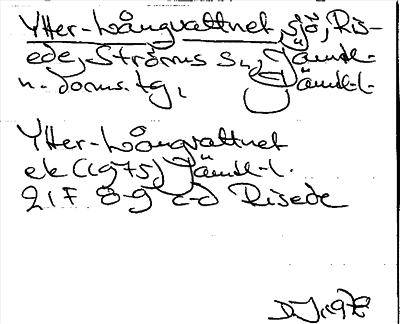 Ytter-Långvattnet, sjö, Ris-
ede, Ströms sn, Jämtl-
n. doms. tg, Jämtl. l.
Ytter-Långvattnet
ek (1975) Jämtl. l.
21F 8-9 c-d Risede
DJ 1978